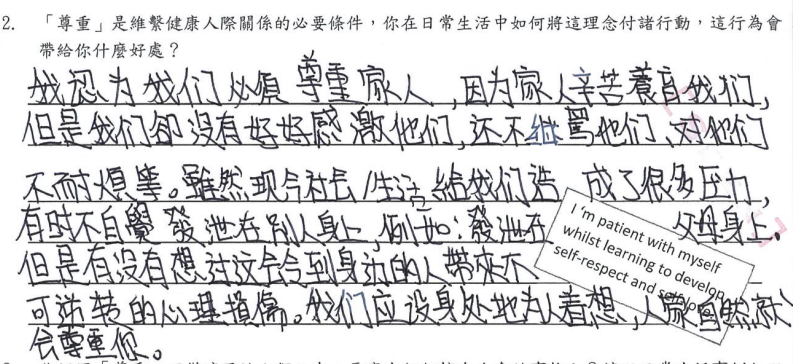 2. 「尊重」是維繫健康人際關係的必要條件，你在日常生活中如何將這理念付諸行動，這行為會
帶給你什麼好處？
我认为我们必須尊重家人，因为家人辛苦養育我们，
但是我们卻没有好好感激他们，还不断罵他们、对他们
不耐煩等。雖然现今社会/生活給我们造成了很多压力，
有时不自覺發泄在别人身上，例如：發泄在父母身上。
但是有没有想过这会令到身边的人帶來不
可逆转的心理損傷。我们应设身处地为人着想，人家自然就
会尊重你。
I 'm patient with myself
whilst learning to develop
self-respect and